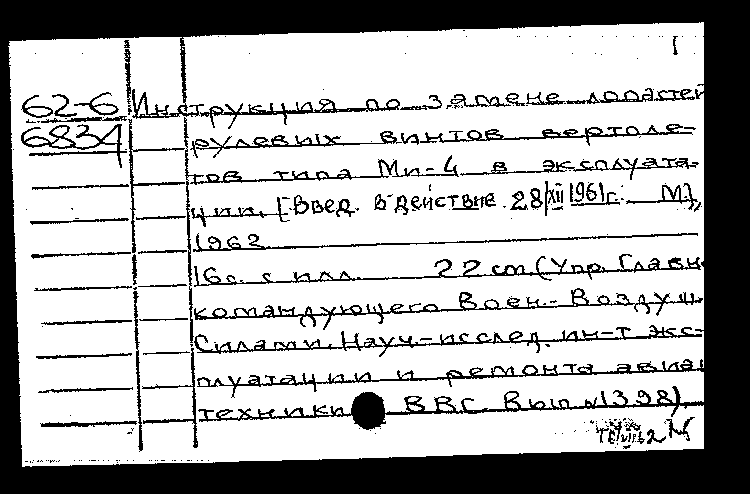 62-6 Инструкция по замене лопастей
6834 рулевых винтов вертоле-
тов типа Ми-4 в эксплуата-
ции. [Введ. в действие 28/XII 1961г. М],
1962
16 с. с илл. 22 cm. (Упр. Главн
командующего Воен.-Воздуш
Силами. Науч.-исслед. ин-т экс-
плуатации и ремонта авиа
техники ВВС. Вып №1398)